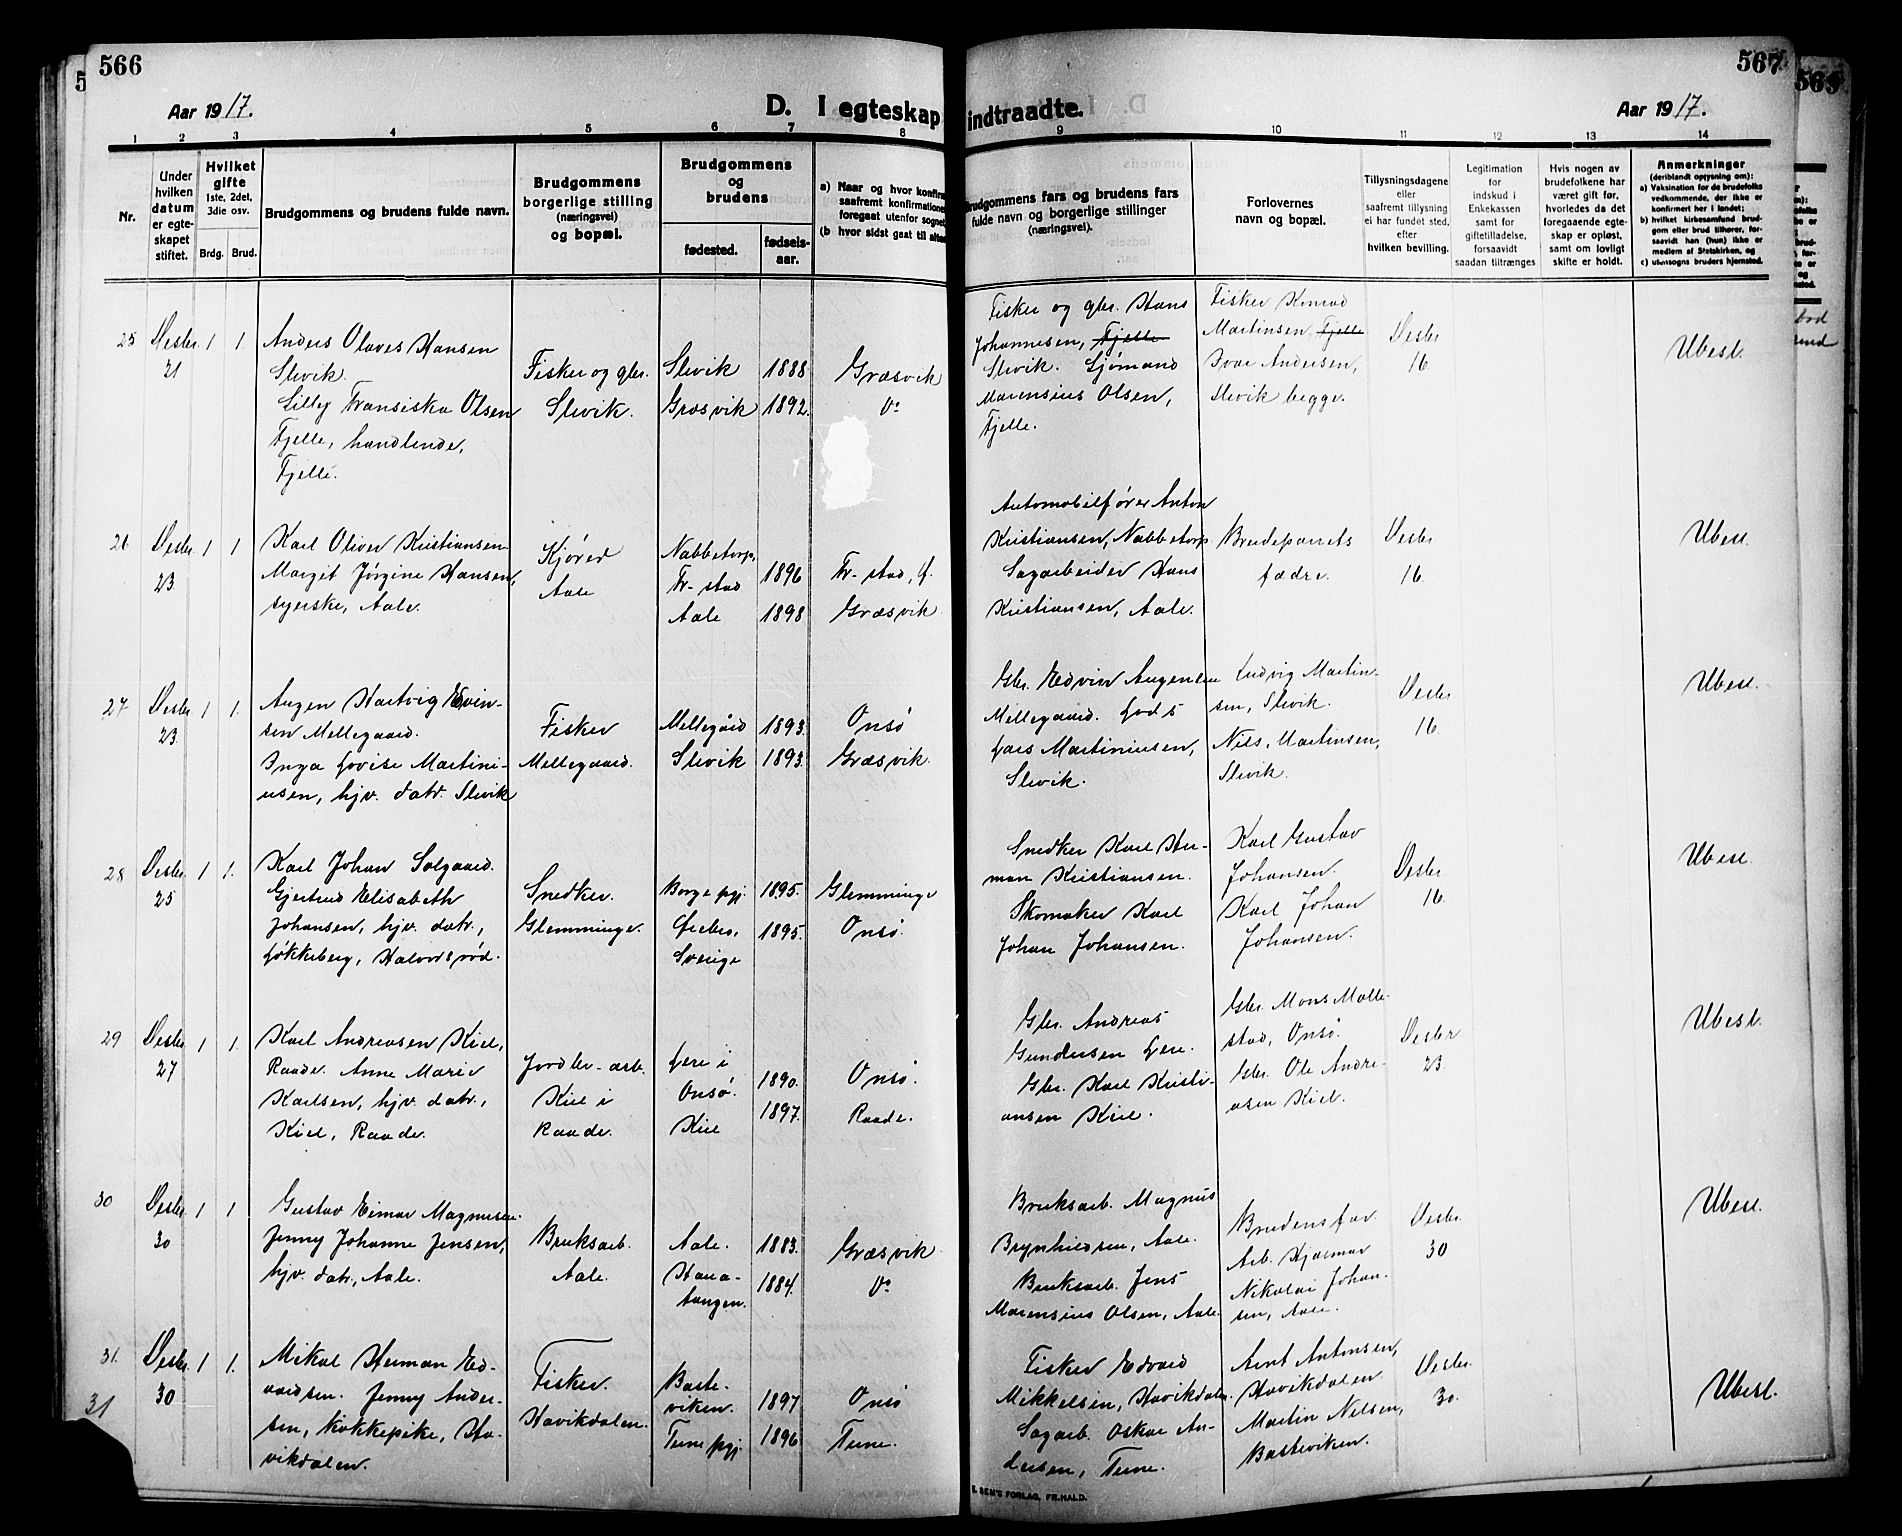 566
567
569
Aar 1917.
D. I egteskap indtraadte.
Aar 1917.
1 2 3 4 5 6 7 8 9 10 11 12 13 14
Nr.
Under hvilken datum er egteskapet stiftet.
Hvilket gifte 1ste, 2det, 3die osv.
Brdg. Brud.
Brudgommens og brudens fulde navn.
Brudgommens borgerlige stilling (næringsvei) og bopæl.
Brudgommens og brudens
fødested.
fødselsaar.
a) Naar og hvor konfirm
saafremt konfirmationen
foregaat utenfor sognet
(b hvor sidst gaat til alters
Brudgommens fars og brudens fars
fulde navn og borgerlige stillinger
(næringsvei).
Forlovernes
navn og bopæl.
Tillysningsdagene
eller
saafremt tillysning
ei har fundet sted,
efter
hvilken bevilling.
Legitimation
for
indskud i
Enkekassen
samt for
giftetilladelse,
forsaavidt
saadan tiltrænges
Hvis nogen av
brudefolkene har
været gift før,
hvorledes da det
foregaaende egte-
skap er opløst,
samt om lovligt
skifte er holdt.
Anmerkninger
(deriblandt opjysning om):
a) Vaksination for de brudefolks
vedkommende, der ikke er
konfirmert her i landet;
b) hvilket kirkesamfund brud-
gom eller brud tilhører, for-
saavidt han (hun) ikke er
medlem af Statskirken, og
c) utensogns bruders hjemsted.
25 Desbr. 21 1 1.
Anders Olaves Hansen
Slevik.
Lilly Fransiska Olsen
Fjelle, handlende,
Fjelle.
Fisker og gbr.
Slevik.
Slevik 1888 Græsvik
Græsvik 1892. Do
Fisker og gbr. Hans
Johannesen, Fjelle
Slevik. Sjømand
Marensius Olsen,
Fjelle.
Fisker Konrad
Martinsen, Fjelle
Ivar Andersen,
Slevik begge.
Desbr
16.
Ubesl.
26 Desbr. 23 1 1.
Karl Oliver Kristiansen
Margit Jørgine Hansen,
syerske, Aale.
Kjører
Aale
Nabbetorp,
Fr-stad 1896 Fr-stad, f.
Aale 1898 Græsvik.
Automobilfører Anton
Kristiansen, Nabbetorp
Sagarbeider Hans
Kristiansen, Aale.
Brudeparrets
fædre.
Desbr
16.
Ubesl.
27 Desbr. 23 1 1.
Augen Hartvig Edvin-
sen Mellegaard.
Inga Lovise Martini-
usen, hjv. datr. Slevik
Fisker
Mellegaard.
Mellegård 1893. Onsø
Slevik 1893. Græsvik.
Gbr. Edvin Augensen
Mellegaard. Lods
Lars Martiniusen,
Slevik.
Ludvig Martin-
sen, Slevik.
Nils Martinsen,
Slevik.
Desbr
16.
Ubesl.
28 Desbr. 25 1 1.
Karl Johan Solgaard.
Gjertrud Elisabeth
Johansen, hjv. datr.,
Løkkeberg, Halvorsrød.
Snedker.
Glemminge.
Borge pgj. 1895. Glemminge
Ørebro, 1895. Onsø.
Sverige
Snedker Karl Her-
man Kristiansen.
Skomaker Karl
Johan Johansen.
Karl Gustav
Johansen.
Karl Johan
Johansen.
Desbr.
16.
Ubesl.
29 Desbr. 27 1 1.
Karl Andreasen Kiel,
Raade. Anne Marie
Karlsen, hjv. datr.,
Kiel, Raade.
Jordbr-arb.
Kiel i
Raade.
Lere i
Onsø. 1890. Onsø.
Kiel 1897. Raade.
Gbr. Andreas
Gundersen Lere.
Gbr. Karl Kristi-
ansen Kiel.
Gbr. Mons Molle-
stad, Onsø.
Gbr. Ole Andre-
asen Kiel.
Desbr
23.
Ubesl.
30 Desbr. 30 1 1.
Gustav Einar Magnusen
Jenny Johanne Jensen,
hjv. datr., Aale.
Bruksarb.
Aale.
Aale. 1883. Græsvik
Hara-
tangen. 1884. Do
Bruksarb. Magnus
Brynhildsen, Aale.
Bruksarb. Jens
Marensius Olsen, Aale.
Brudens far.
Arb. Hjalmar
Nikolai Johan-
sen, Aale.
Desbr.
30
Ubesl.
31. Desbr. 30 1 1.
31
Mikal Herman Ed-
vardsen. Jenny Ander-
sen, kokkepike, Ha-
vikdalen.
Fisker.
Havikdalen.
Baste-
viken. 1897 Onsø
Tune pgj. 1896 Tune.
Fisker Edvard
Mikkelsen, Havikdalen.
Sagarb. Oskar An-
dersen, Tune.
Arnt Antonsen,
Havikdalen
Martin Nilsen,
Basteviken.
Desbr.
30.
Ubesl.
E. SEM'S FORLAG, FR.HALD.